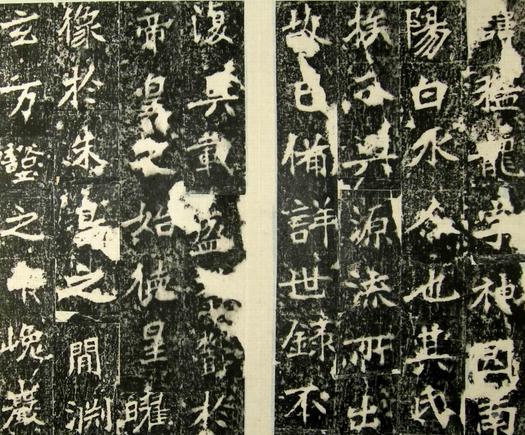 諱猛龍字神囧南
陽白水人也其氏
族分興源流所出
故已備詳世錄不
復具載於
帝皇之始德星曜
像於朱鳥之間淵
玄万壑之中巉巖